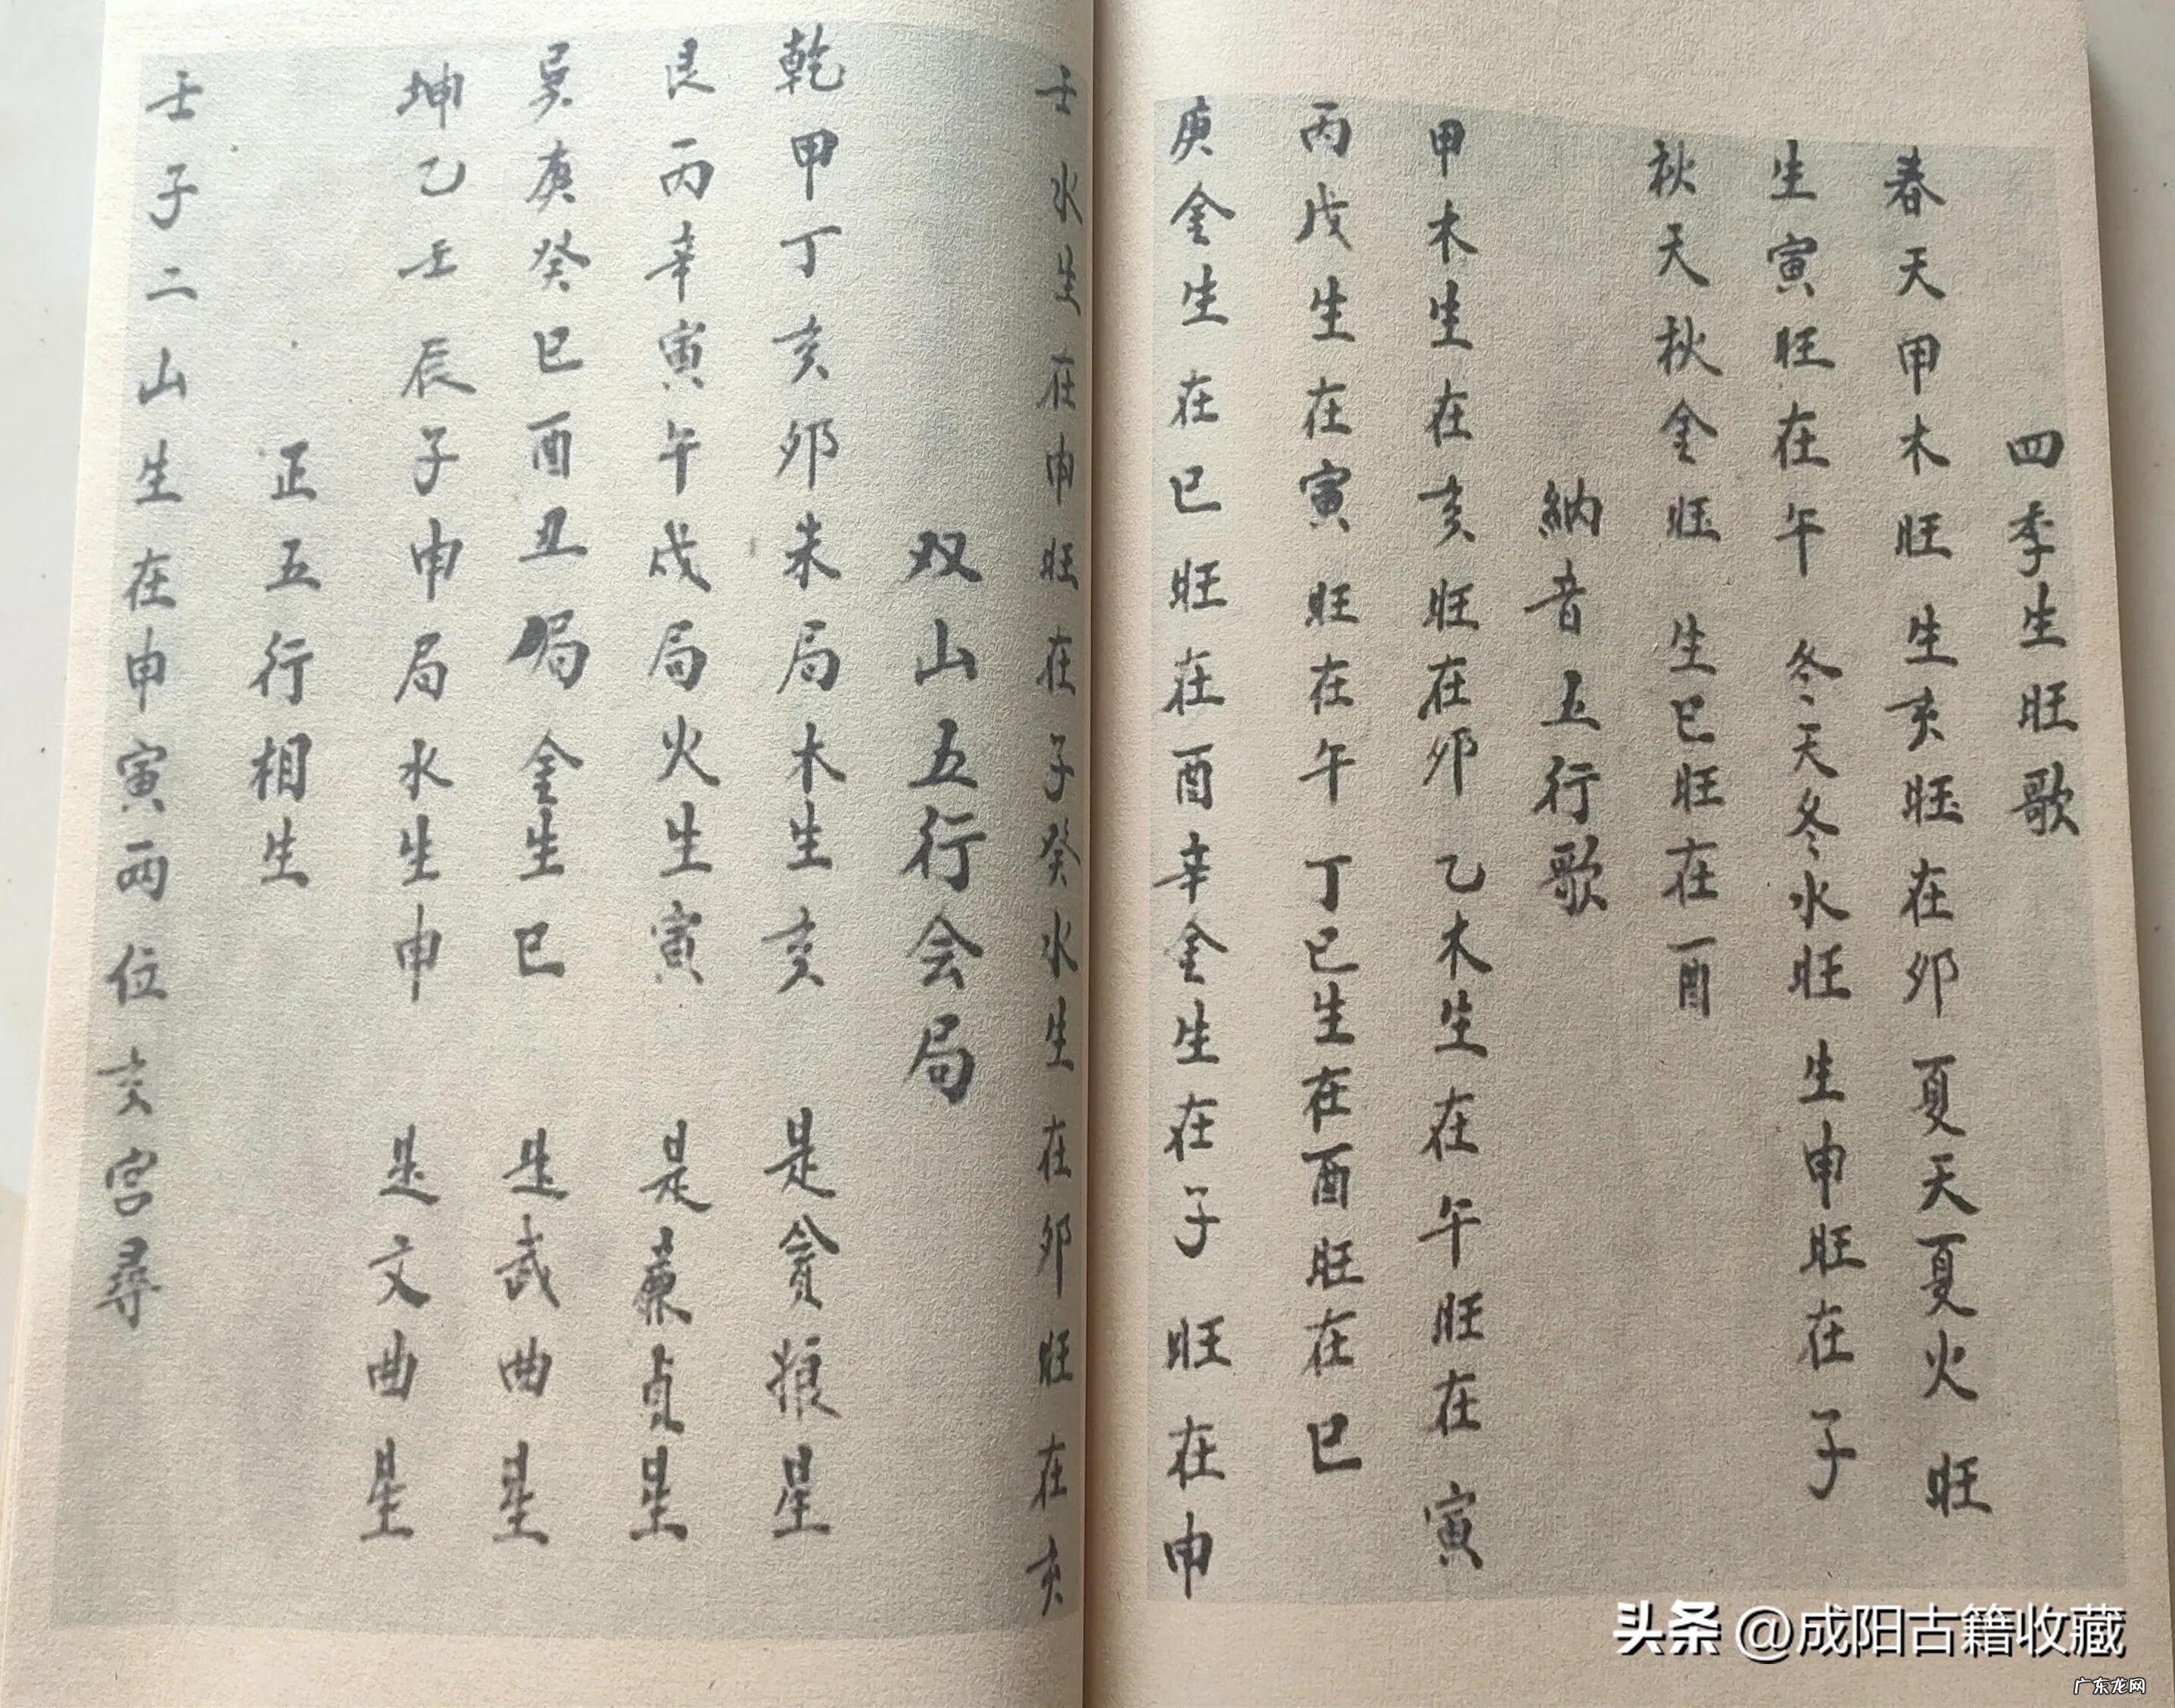 四季生旺歌
春天甲木旺 生亥旺在卯 夏天夏火旺
生寅旺在午 冬天冬水旺 生申旺在子
秋天秋金旺 生巳旺在酉
納音五行歌
甲木生在亥旺在卯 乙木生在午旺在寅
丙戊生在寅旺在午 丁己生在酉旺在巳
庚金生在巳旺在酉辛金生在子旺在申
壬水生在申旺在子癸水生在卯旺在亥
双山五行会局
乾甲丁亥卯未局木生亥 是貪狼星
艮丙辛寅午戌局火生寅 是廉貞星
巽庚癸巳酉丑局金生巳 是武曲星
坤乙壬辰子申局水生申 是文曲星
正五行相生
壬子二山生在申寅两位亥宮尋
头条 @成阳古籍收藏
广东龙网